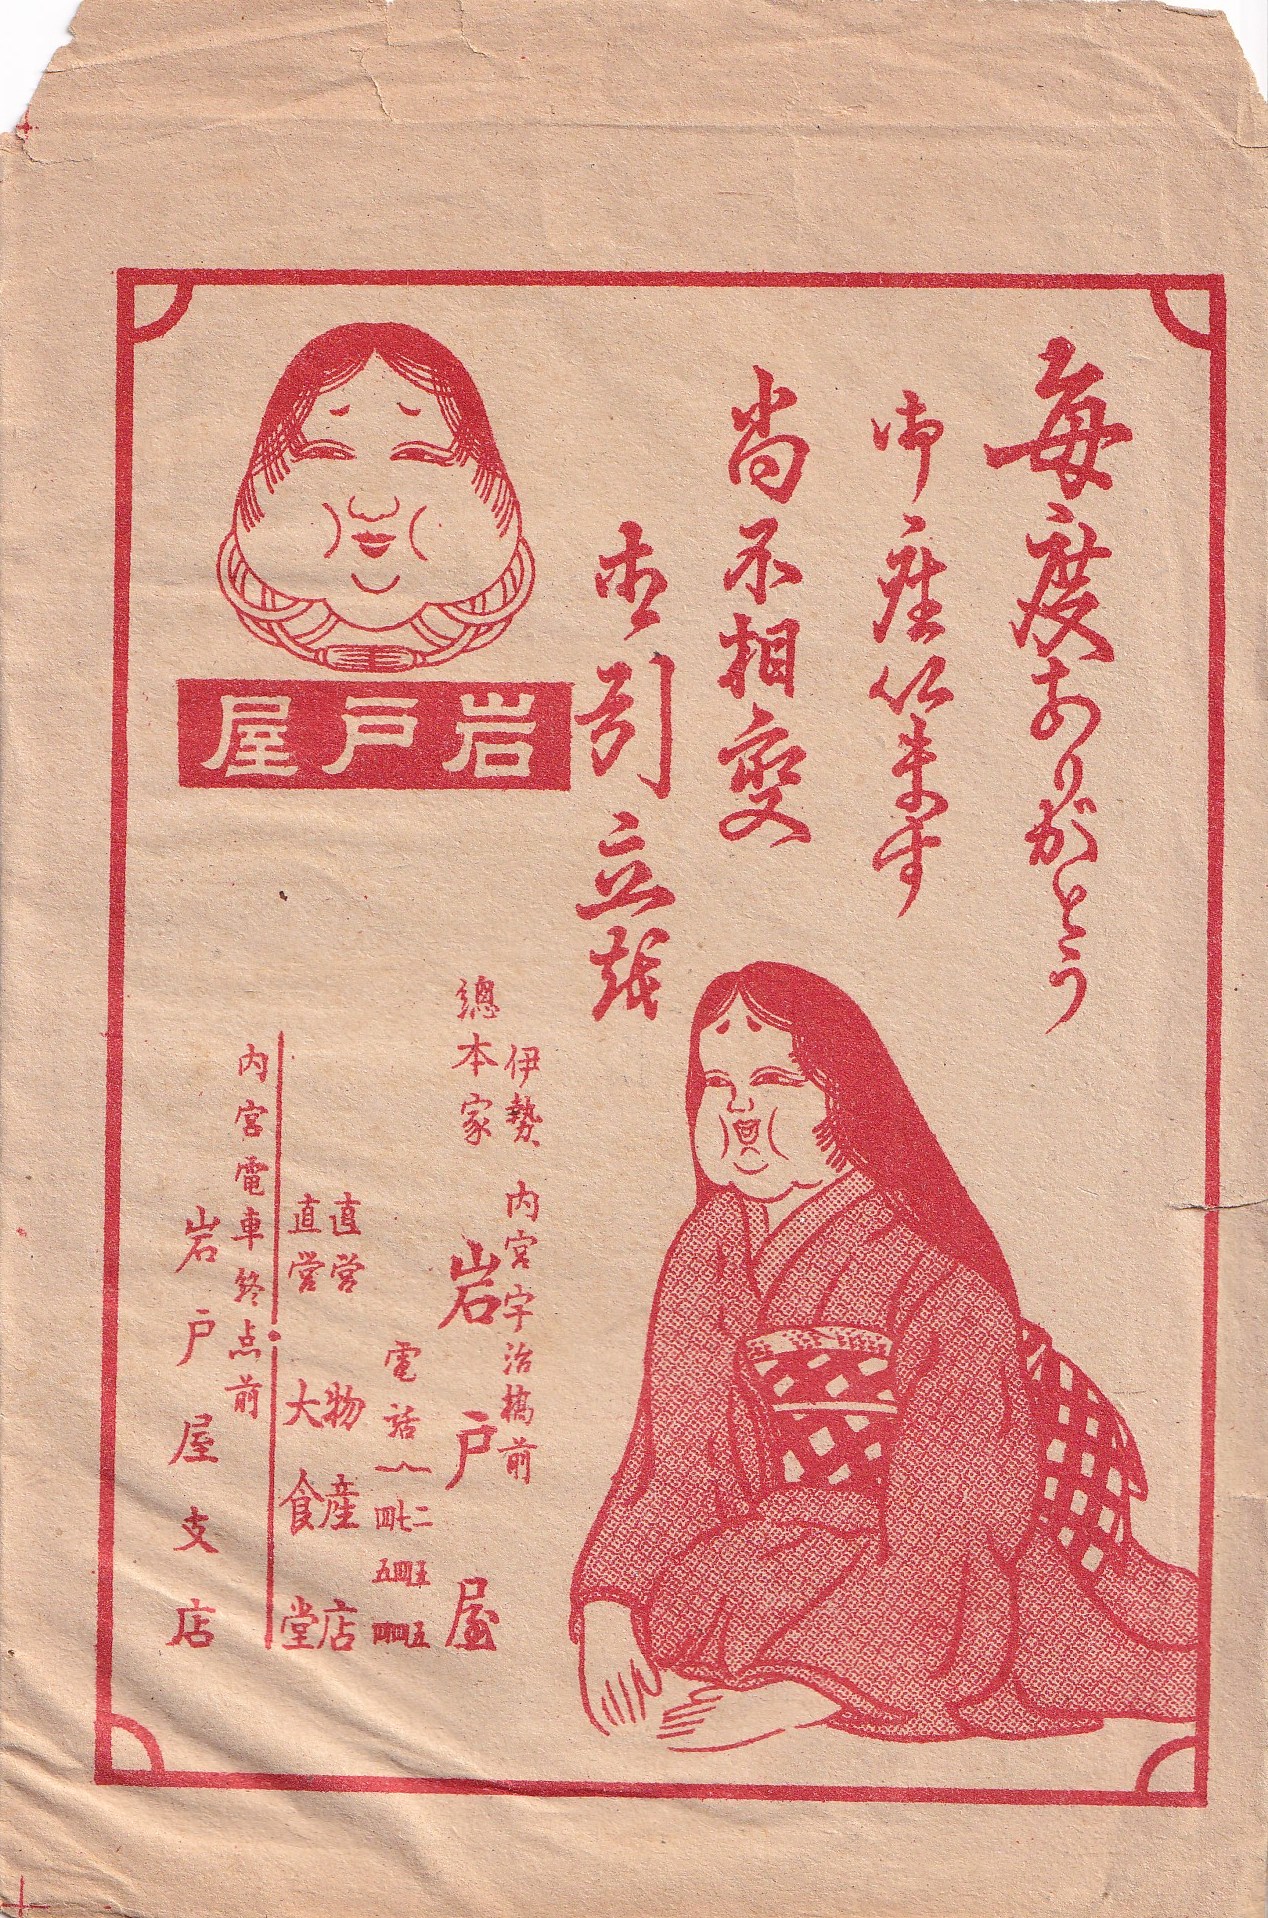 毎度ありがとう
御座います
尚不相変
御引立
岩戸屋
伊勢 内宮宇治橋前
總本家 岩戸屋
電話
二五五
七四四
四五四
直営 物産店
直営 大食堂
内宮電車終点前
岩戸屋支店